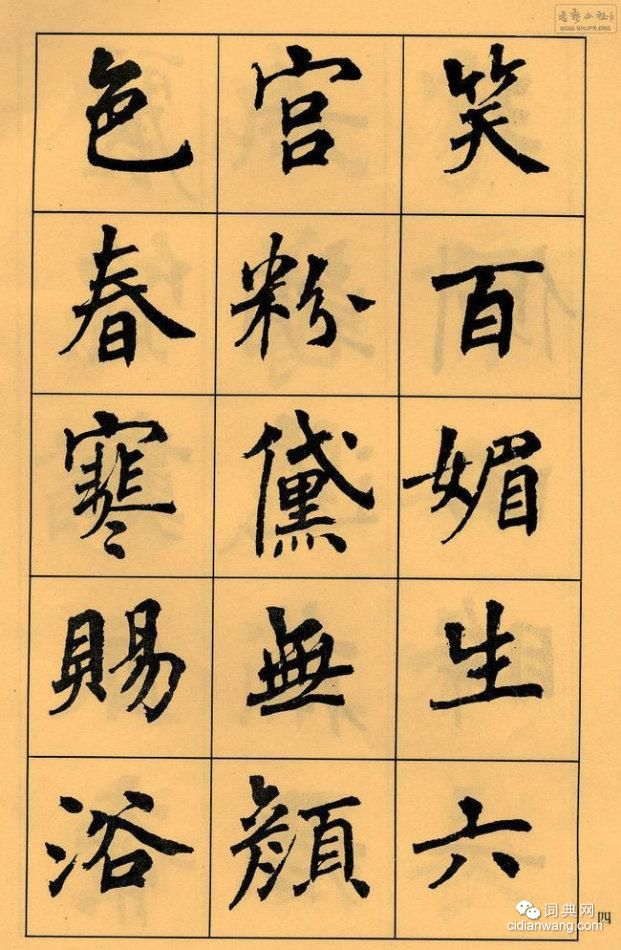 笑百媚生六
宮粉黛無顏
色春寒賜浴
四
WWW.SHUFA.ORG
词典网
cidianwang.com